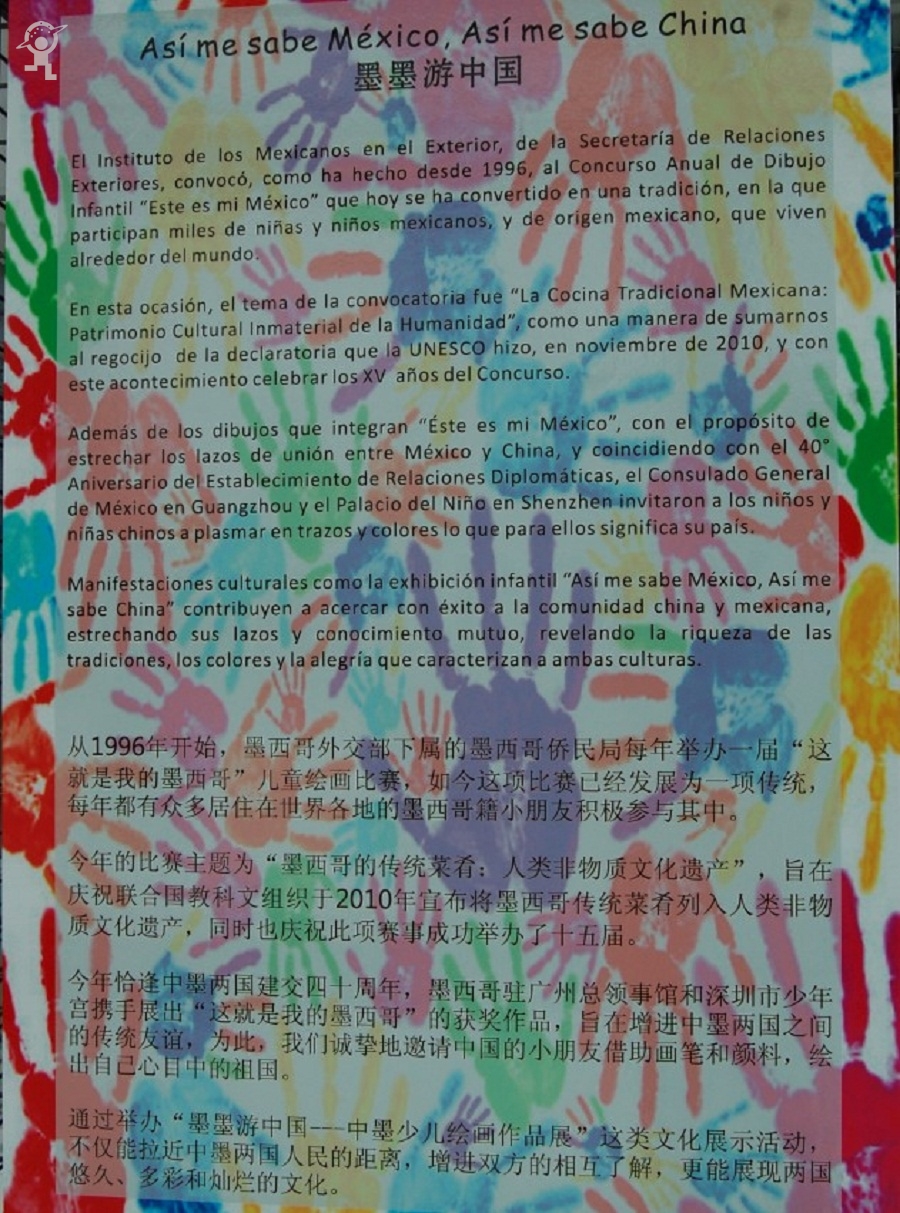 Así me sabe México, Así me sabe China
墨墨游中国
El Instituto de los Mexicanos en el Exterior, de la Secretaría de Relaciones
Exteriores, convocó, como ha hecho desde 1996, al Concurso Anual de Dibujo
Infantil "Este es mi México" que hoy se ha convertido en una tradición, en la que
participan miles de niñas y niños mexicanos, y de origen mexicano, que viven
alrededor del mundo.
En esta ocasión, el tema de la convocatoria fue "La Cocina Tradicional Mexicana:
Patrimonio Cultural Inmaterial de la Humanidad", como una manera de sumarnos
al regocijo de la declaratoria que la UNESCO hizo, en noviembre de 2010, y con
este acontecimiento celebrar los XV años del Concurso.
Además de los dibujos que integran "Éste es mi México", con el propósito de
estrechar los lazos de unión entre México y China, y coincidiendo con el 40°
Aniversario del Establecimiento de Relaciones Diplomáticas, el Consulado General
de México en Guangzhou y el Palacio del Niño en Shenzhen invitaron a los niños y
niñas chinos a plasmar en trazos y colores lo que para ellos significa su país.
Manifestaciones culturales como la exhibición infantil "Así me sabe México, Así me
sabe China" contribuyen a acercar con éxito a la comunidad china y mexicana,
estrechando sus lazos y conocimiento mutuo, revelando la riqueza de las
tradiciones, los colores y la alegría que caracterizan a ambas culturas.
从1996年开始，墨西哥外交部下属的墨西哥侨民局每年举办一届“这
就是我的墨西哥”儿童绘画比赛，如今这项比赛已经发展为一项传统，
每年都有众多居住在世界各地的墨西哥籍小朋友积极参与其中。
今年的比赛主题为“墨西哥的传统菜肴：人类非物质文化遗产”，旨在
庆祝联合国教科文组织于2010年宣布将墨西哥传统菜肴列入人类非物
质文化遗产，同时也庆祝此项赛事成功举办了十五届。
今年恰逢中墨两国建交四十周年，墨西哥驻广州总领事馆和深圳市少年
宫携手展出“这就是我的墨西哥”的获奖作品，旨在增进中墨两国之间
的传统友谊，为此，我们诚挚地邀请中国的小朋友借助画笔和颜料，绘
出自己心目中的祖国。
通过举办“墨墨游中国---中墨少儿绘画作品展”这类文化展示活动，
不仅能拉近中墨两国人民的距离，增进双方的相互了解，更能展现两国
悠久、多彩和灿烂的文化。